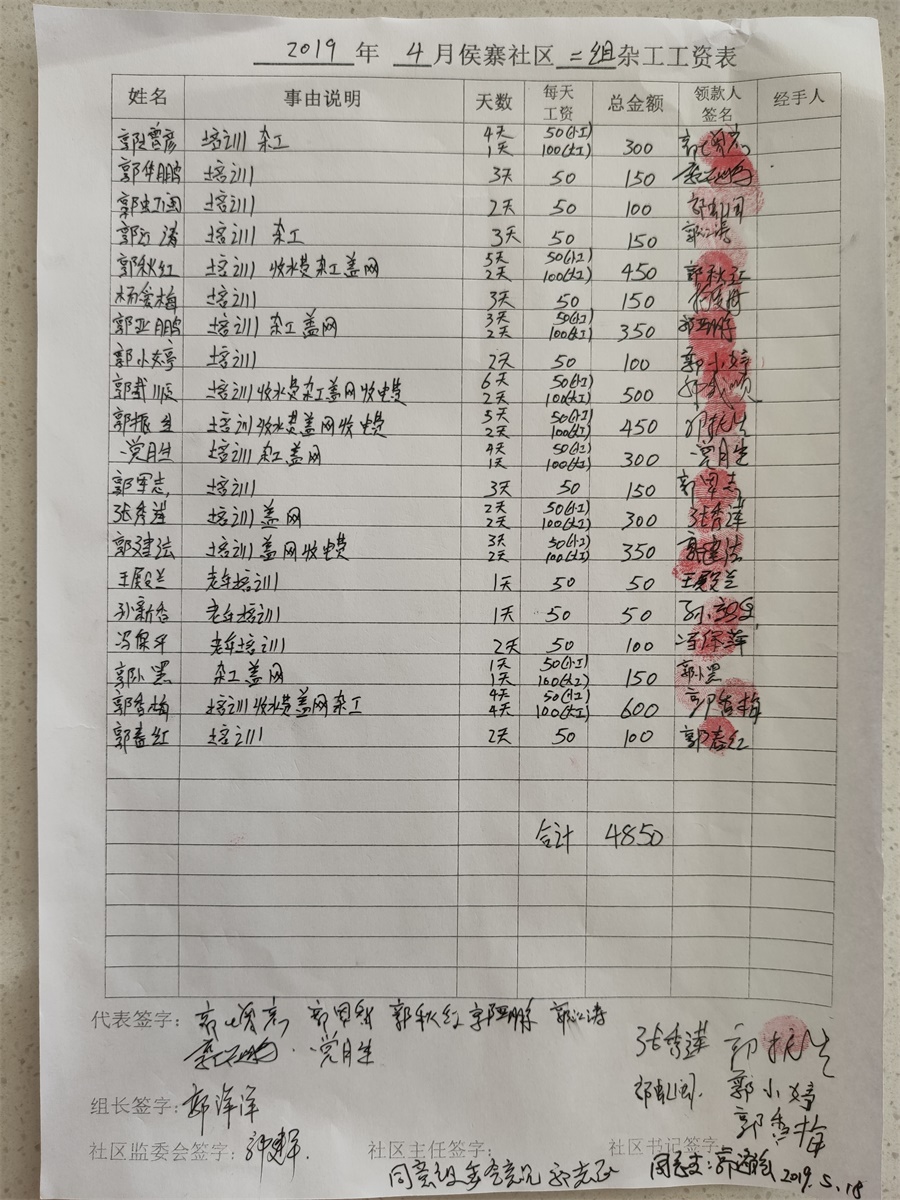 2019 年 4 月侯寨社区 二组 杂工工资表
姓名 事由说明 天数 每天工资 总金额 领款人签名 经手人
培训 杂工 4天 50(小工) 1天 100(大工) 300
郭华鹏 培训 3天 50 150
郭虹闯 培训 2天 50 100 郭虹闯
郭江涛 培训 杂工 3天 50 150 郭江涛
郭秋红 培训 收水费杂工盖网 5天 50(小工) 2天 100(大工) 450 郭秋红
杨爱梅 培训 3天 50 150
郭亚鹏 培训 杂工盖网 3天 50(小工) 2天 100(大工) 350 郭亚鹏
郭小婷 培训 2天 50 100 郭小婷
培训收水费杂工盖网收电费 6天 50(小工) 2天 100(大工) 500
郭振生 培训收水费盖网收电费 5天 50(小工) 2天 100(大工) 450 郭振生
党月生 培训杂工盖网 4天 50(小工) 1天 100(大工) 300 党月生
郭军志 培训 3天 50 150 郭军志
张秀莲 培训盖网 2天 50(小工) 2天 100(大工) 300 张秀莲
郭建法 培训盖网收电费 3天 50(小工) 2天 100(大工) 350 郭建法
王殿兰 老年培训 1天 50 50 王殿兰
孙新香 老年培训 1天 50 50
老年培训 2天 50 100
郭小黑 杂工盖网 1天 50(小工) 1天 100(大工) 150 郭小黑
郭香梅 培训收水费盖网杂工 4天 50(小工) 4天 100(大工) 600 郭香梅
郭春红 培训 2天 50 100 郭春红
合计 4850
代表签字: 郭秋红 郭亚鹏 郭江涛
党月生
张秀莲 郭振生
郭虹闯 郭小婷
郭香梅
组长签字: 郭洋洋
社区监委会签字: 社区主任签字: 社区书记签字:
2019.5.18